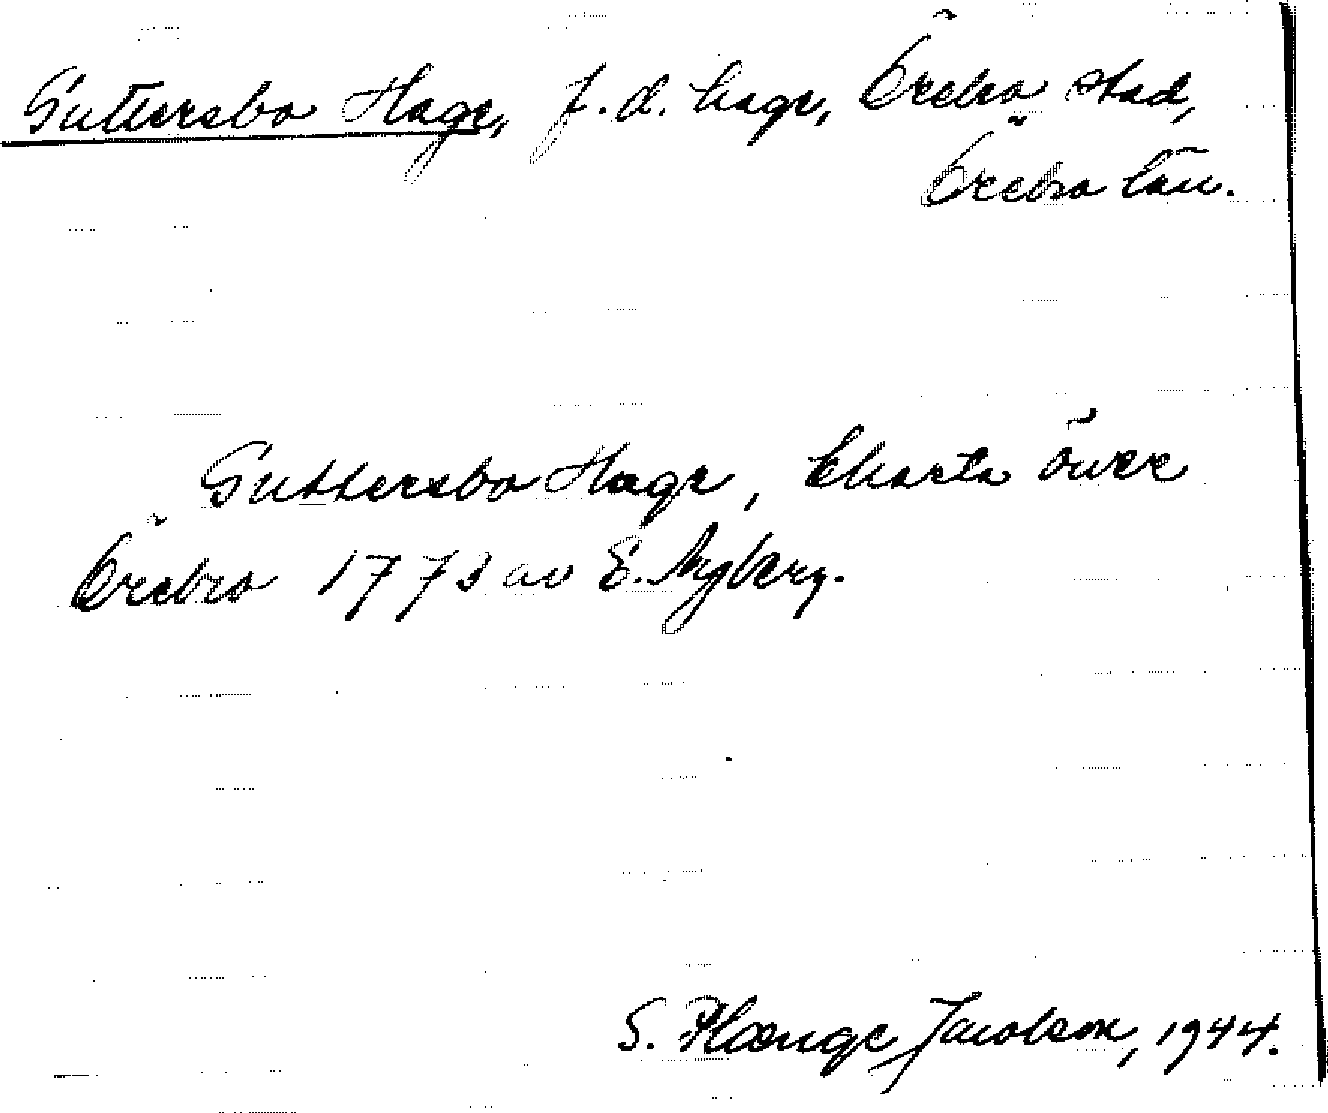 Guttersbo Hage, f.d. hage, Örebro stad,
Örebro län.
Guttersbo Hage, Charta över
Örebro 1773 av E. Nyberg.
S. Plænge Jacobson, 1944.